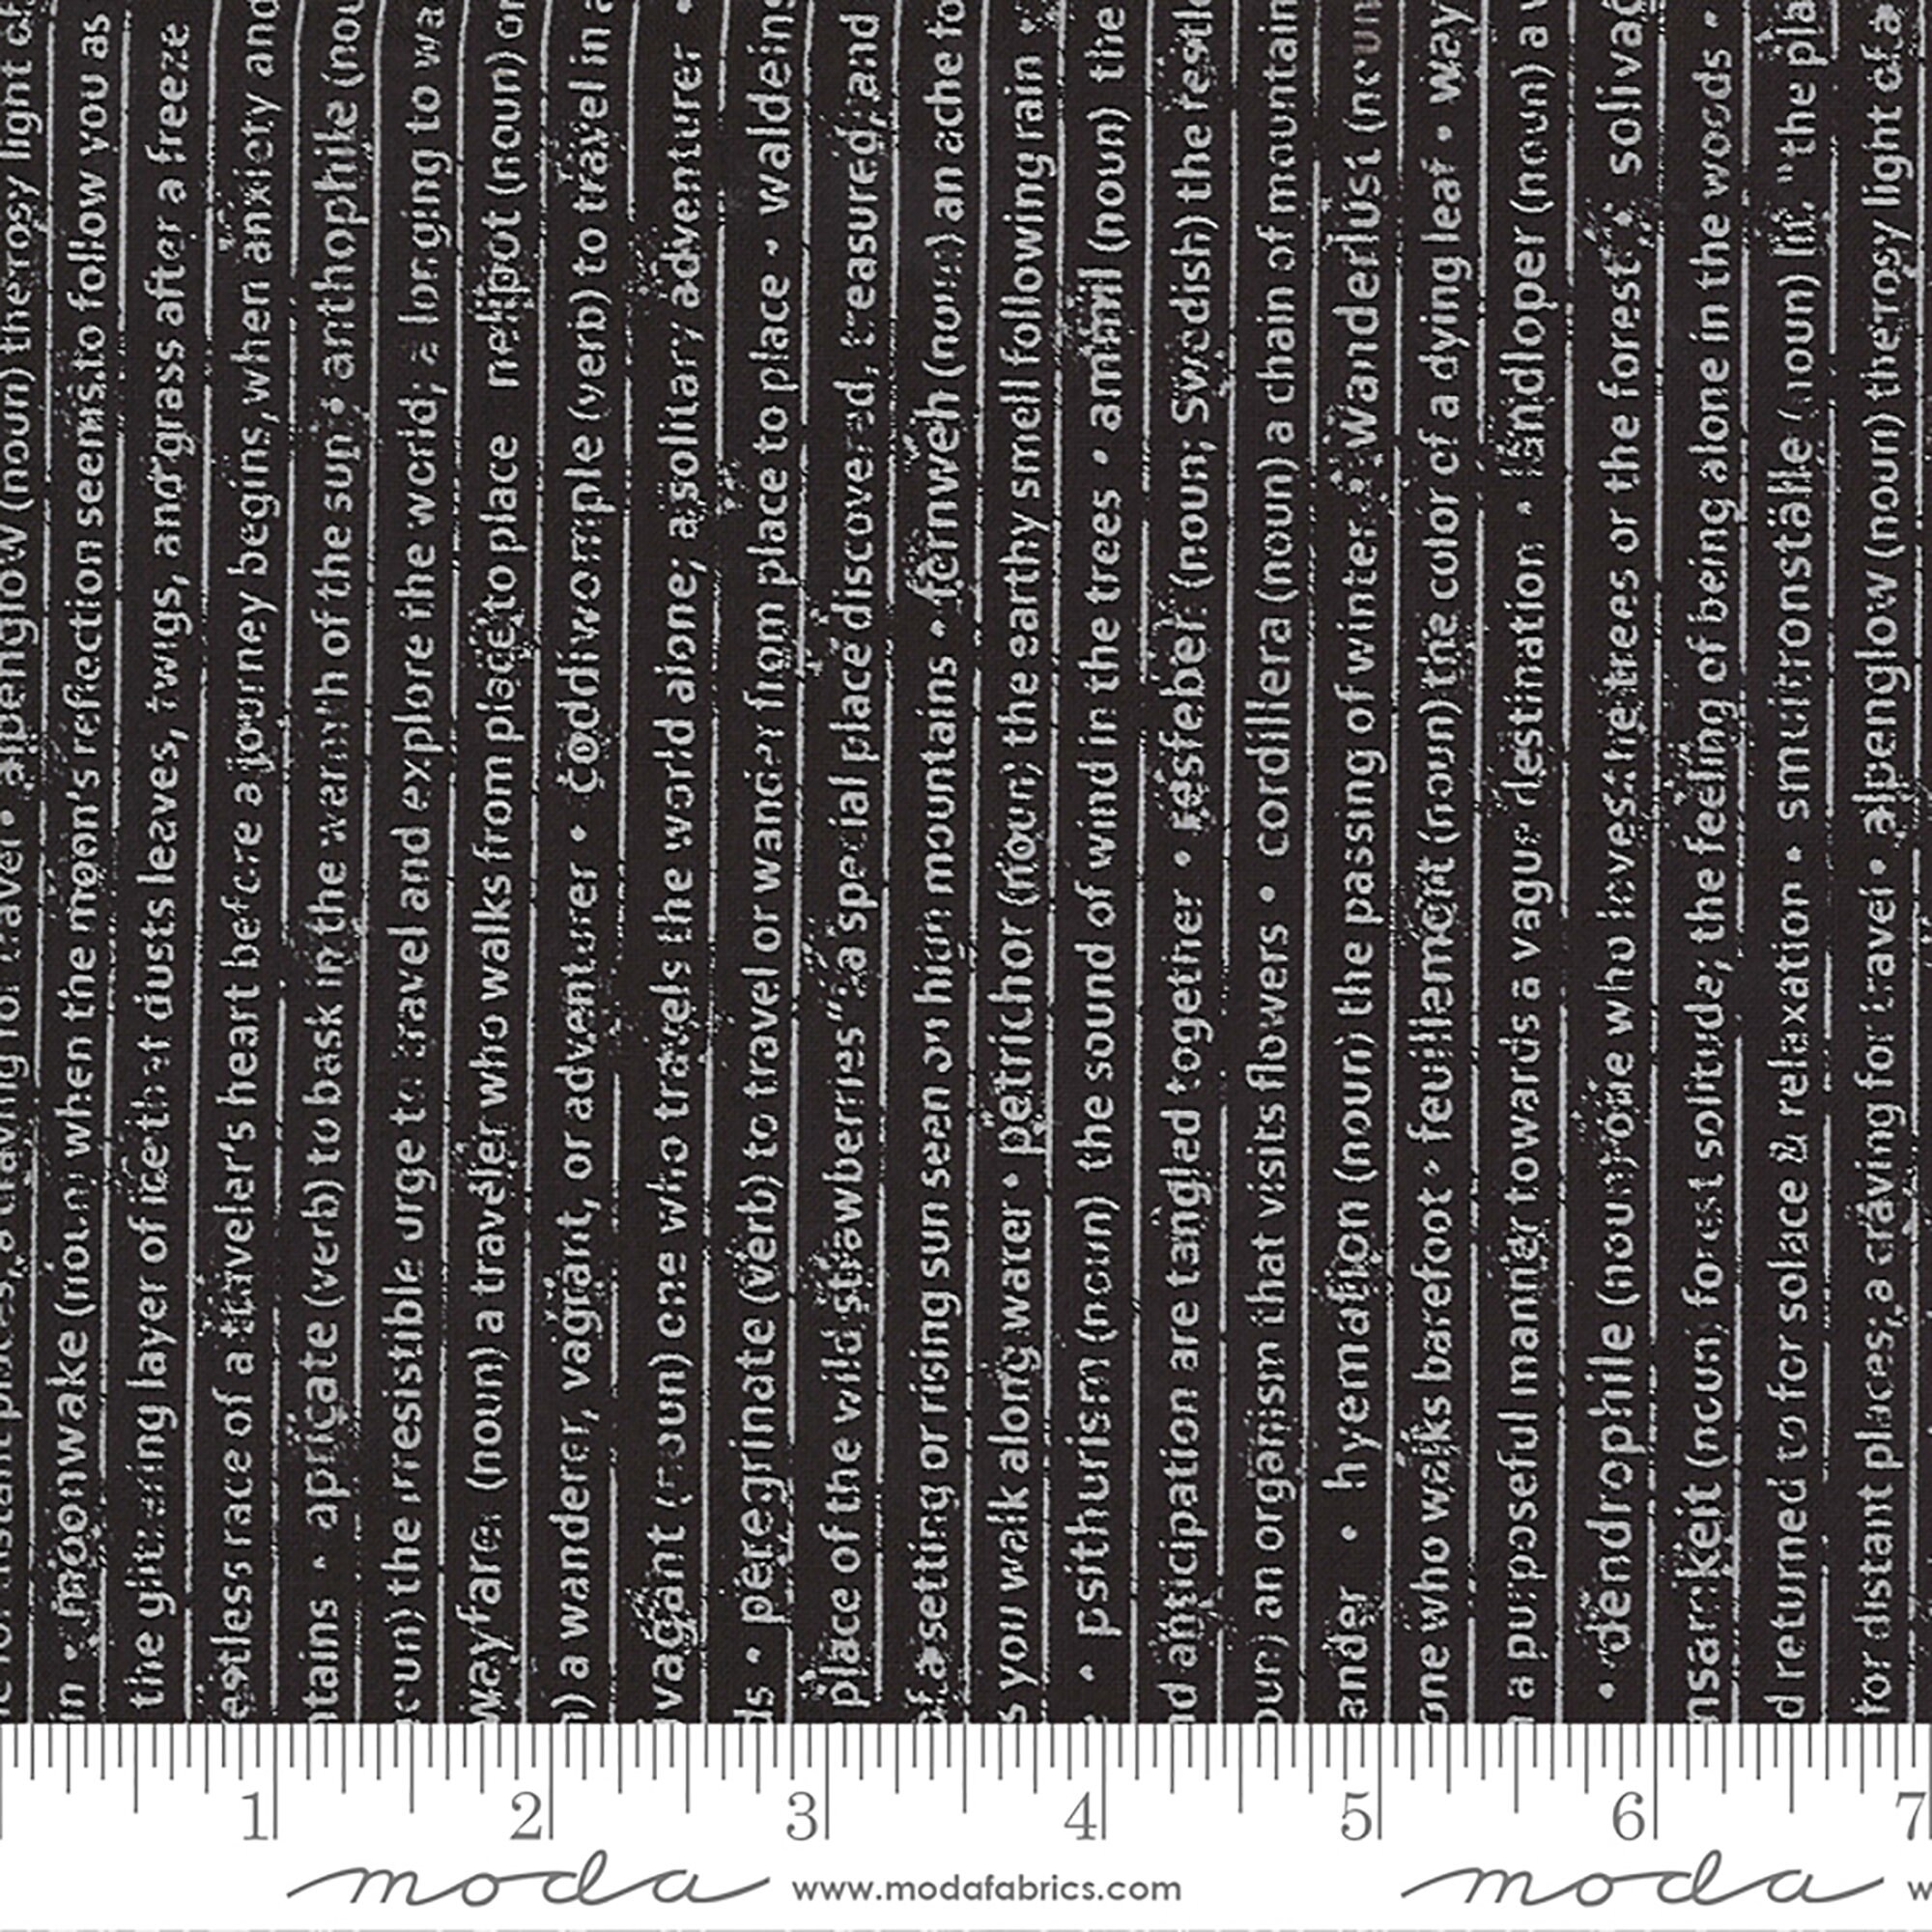 for distant places; a craving for travel • alpenglow (noun) the rosy light of a
in • moonwake (noun) when the moon's reflection seems to follow you as
the glittering layer of ice that dusts leaves, twigs, and grass after a freeze
restless race of a traveler's heart before a journey begins, when anxiety and
ntains • apricate (verb) to bask in the warmth of the sun • anthophile (nou
oun) the irresistible urge to travel and explore the world; a longing to wa
wayfarer (noun) a traveler who walks from place to place nelipot (noun) on
n) a wanderer, vagrant, or adventurer • coddiwomple (verb) to travel in a
vagant (noun) one who travels the world alone; a solitary adventurer •
ds • peregrinate (verb) to travel or wander from place to place • waldeins
place of the wild strawberries" a special place discovered, treasured, and
of a setting or rising sun seen on high mountains • fernweh (noun) an ache fo
s you walk along water • petrichor (noun) the earthy smell following rain •
• psithurism (noun) the sound of wind in the trees • ammil (noun) the
nd anticipation are tangled together • resfeber (noun; Swedish) the restle
oun) an organism that visits flowers • cordillera (noun) a chain of mountain
ander • hyemation (noun) the passing of winter • Wanderlust (noun
one who walks barefoot • feuillemort (noun) the color of a dying leaf • way
n a purposeful manner towards a vague destination • landloper (noun) a v
• dendrophile (noun) one who loves the trees or the forest • solivag
nsamkeit (noun) forest solitude; the feeling of being alone in the woods •
d returned to for solace & relaxation • smultronställe (noun) lit. "the pla
for distant places; a craving for travel • alpenglow (noun) the rosy light of a
1 2 3 4 5 6 7
moda www.modafabrics.com moda w